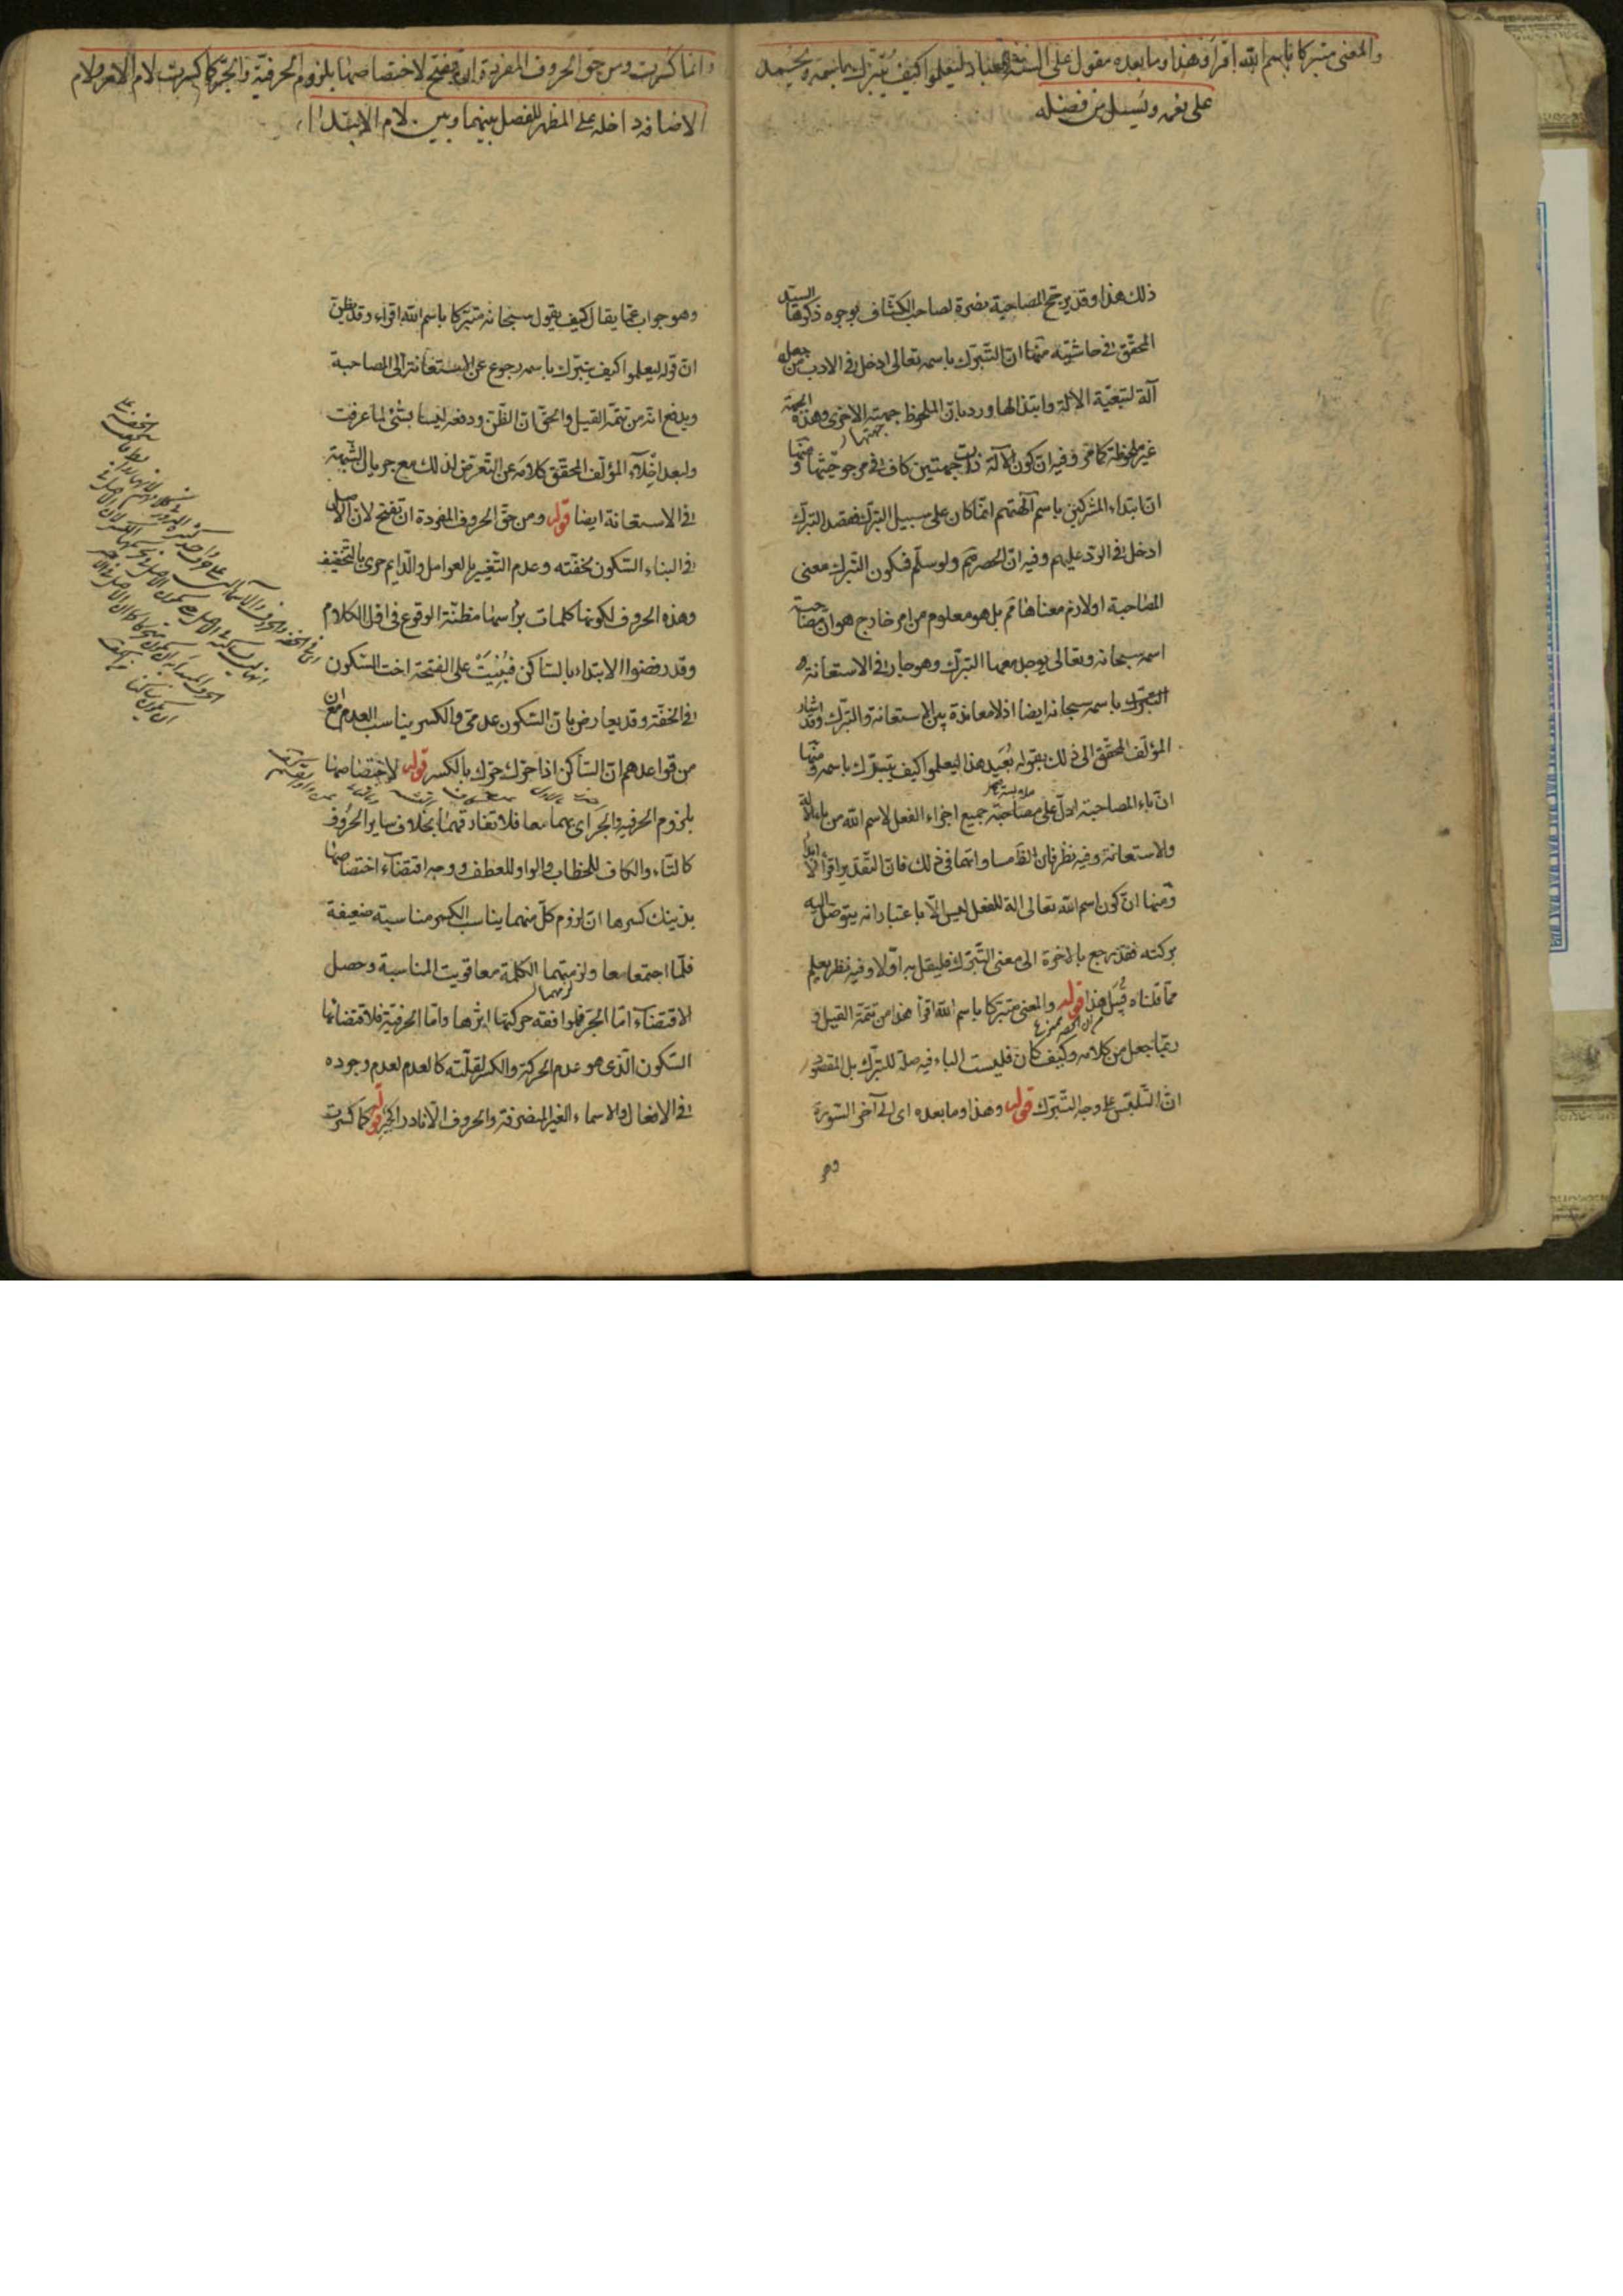 والمعنى متبركا باسم الله اقرأ وهذا وما بعده مقول على السنة العباد ليعلموا كيف يتبرك باسمه ويحمد
على نعمه ويسئل من فضله
ذلك هذا وقد يرجح المصاحبة نصرة لصاحب الكشاف بوجوه ذكرها السيد
المحقق في حاشيته منها ان التبرك باسمه تعالى ادخل في الادب من جعله
آلة لتبعية الآلة وابتذالها ورد بان الملحوظ جهته الاخرى وهذه الجهة
غير ملحوظة كما مر وفيه ان كون الآلة ذات جهتين كاف في مرجوحيتها ومنها
ان ابتداء المشركين باسم آلهتهم انما كان على سبيل التبرك فقصد التبرك
ادخل في الرد عليهم وفيه ان الحصر مم ولو سلم فكون التبرك معنى
المصاحبة او لازم معناها مم بل هو معلوم من امر خارج هو ان مصاحبة
اسمه سبحانه وتعالى يوجد معها التبرك وهو جار في الاستعانة
التبرك باسمه سبحانه ايضا اذ لا معاندة بين الاستعانة والتبرك وقد اشار
المؤلف المحقق الى ذلك بقوله بعيد هذا ليعلموا كيف يتبرك باسمه ومنها
ان باء المصاحبة ادل على مصاحبة جميع اجزاء الفعل لاسم الله من باء الآلة
والاستعانة وفيه نظر فان الظ مساواتها في ذلك فان التقدير اقرأ
ومنها ان كون اسم الله تعالى الة للفعل ليس الا باعتبار انه يتوصل اليه
ببركته فقد رجع بالاخرة الى معنى التبرك فليقل به اولا وفيه نظر يعلم
مما قلناه قبيل هذا قوله والمعنى متبركا باسم الله اقرأ هذا من تتمة القيل و
ربما جعل من كلامه وكيف كان فليست الباء فيه صلة للتبرك بل المقصود
ان التلبس على وجه التبرك قوله وهذا وما بعده اى الى آخر السورة
وهو
وانما كسرت ومن حق الحروف المفردة ان تفتح لاختصاصها بلزوم الحرفية والجر كما كسرت لام الامر ولام
الاضافة داخلة على المظهر للفصل بينهما وبين لام الابتداء
وهو جواب عما يقال كيف يقول سبحانه متبركا باسم الله اقرء وقد يظن
ان قوله ليعلموا كيف يتبرك باسمه رجوع عن الاستعانة الى المصاحبة
ويدفع انه من تتمة القيل والحق ان الظن ودفعه ليسا بشئ لما عرفت
ولبعد اخلاء المؤلف المحقق كلامه عن التعرض لذلك مع جريان الشبهة
في الاستعانة ايضا قوله ومن حق الحروف المفردة ان تفتح لان الاصل
في البناء السكون لخفته وعدم التغيير بالعوامل والدايم حرى بالتخفيف
وهذه الحروف لكونها كلمات برأسها مظنة الوقوع في اول الكلام
وقد رفضوا الابتداء بالساكن فبنيت على الفتحة اخت السكون
في الخفة وقد يعارض بان السكون عدمى والكسر يناسب العدم مع ان
من قواعدهم ان الساكن اذا حرك حرك بالكسر قوله لاختصاصها
بلزوم الحرفية والجر اى بهما معا فلا تفارقهما بخلاف ساير الحروف
كالتاء والكاف للخطاب والواو للعطف ووجه اقتضاء اختصاصها
بذينك كسرها ان لزوم كل منهما يناسب الكسر مناسبة ضعيفة
فلما اجتمعا معا ولزمتهما الكلمة معا قويت المناسبة وحصل
الاقتضاء اما الجر فلموافقة حركتها اثرها واما الحرفية فلاقتضائها
السكون الذى هو عدم الحركة والكسر لقلته كالعدم لعدم وجوده
في الافعال والاسماء الغير المنصرفة والحروف الا نادرا كجير قوله كما كسرت